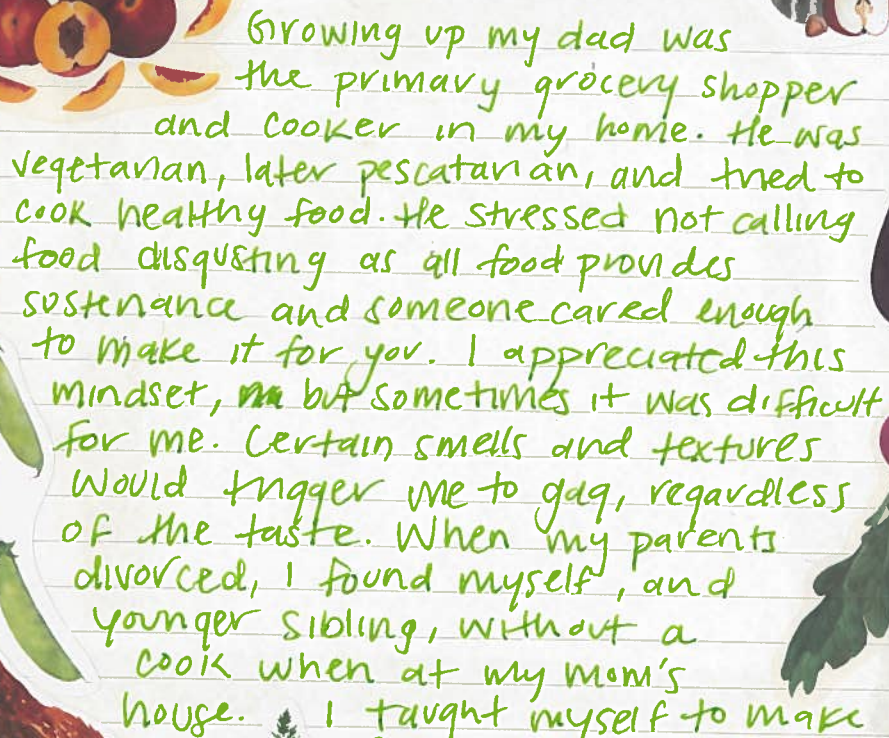 Growing up my dad was
the primary grocery shopper
and cooker in my home. He was
vegetarian, later pescatarian, and tried to
cook healthy food. He stressed not calling
food disgusting as all food provides
sustenance and someone cared enough
to make it for you. I appreciated this
mindset, but sometimes it was difficult
for me. Certain smells and textures
would trigger me to gag, regardless
of the taste. When my parents
divorced, I found myself, and
younger sibling, without a
cook when at my mom's
house. I taught myself to make